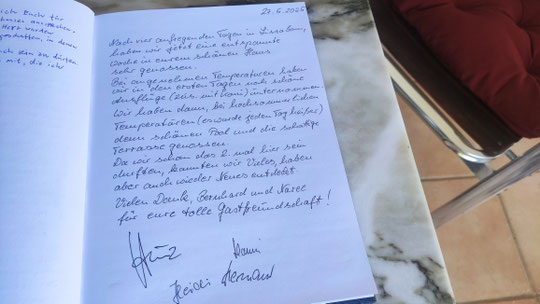 23.6.2025
Nach vier aufregenden Tagen in Lissabon,
haben wir jetzt eine entspannte
Woche in eurem schönen Haus
sehr genossen.
Bei angenehmen Temperaturen haben
wir in den ersten Tagen noch schöne
Ausflüge (z.B. mit Rani) unternommen
Wir haben dann, bei hochsommerlichen
Temperaturen (es wurde jeden Tag heißer)
denn schönen Pool und die schattige
Terrasse genossen.
Da wir schon das 2. mal hier sein
durften, kannten wir Vieles, haben
aber auch wieder Neues entdeckt.
Vielen Dank, Bernhard und
für eure tolle Gastfreundschaft!
Heidi Hermann